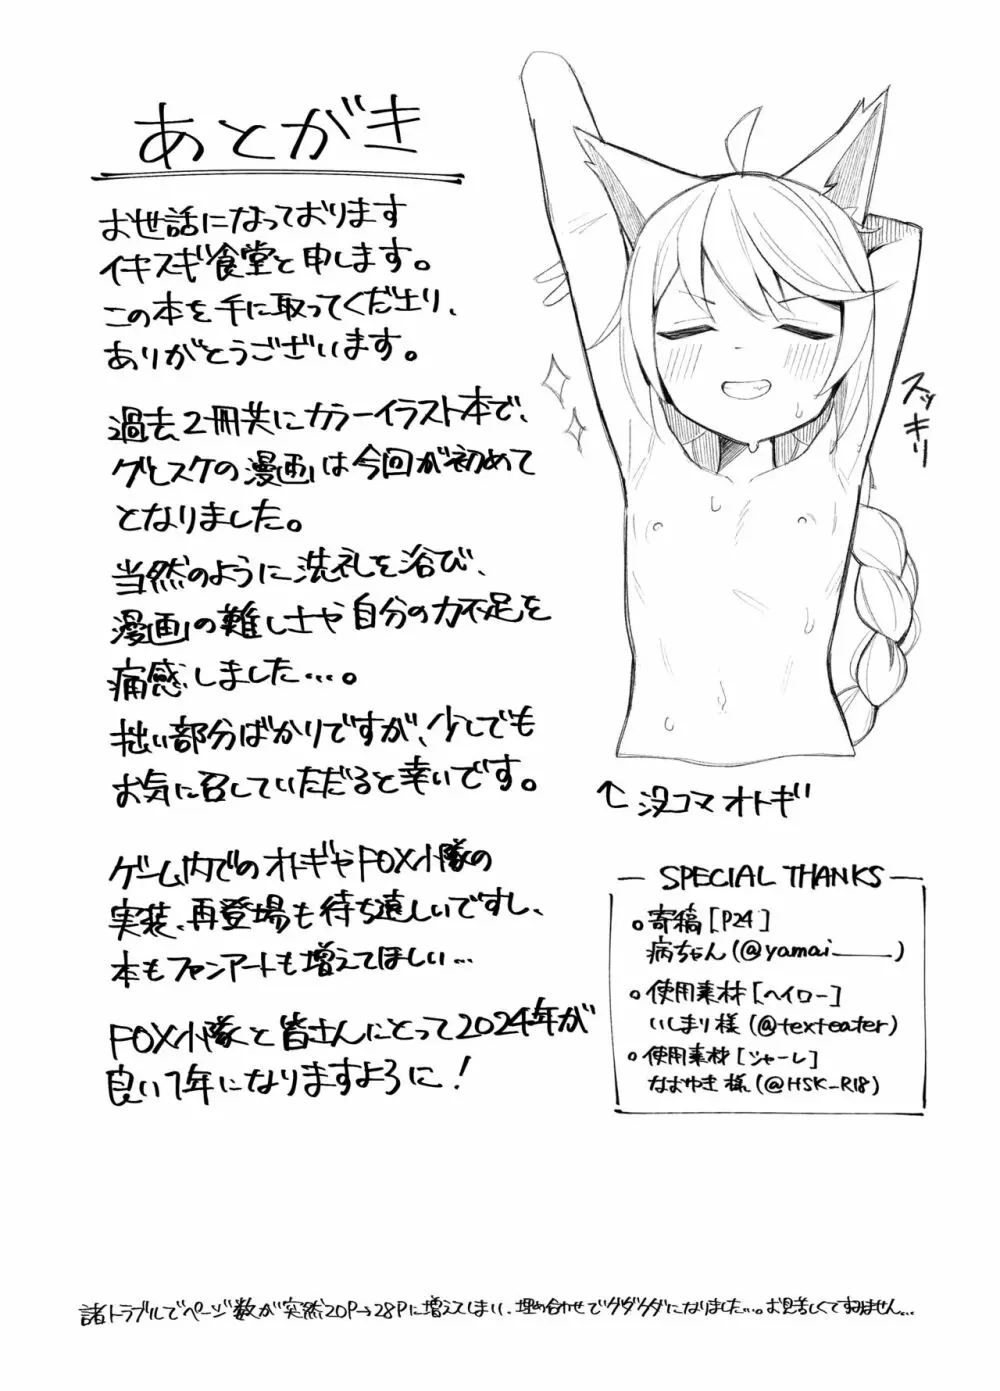 あとがき
お世話になっております
イキスギ食堂と申します。
この本を手に取ってくださり、
ありがとうございます。
過去2冊共にカラーイラスト本で、
グヒスケの漫画は今回が初めて
となりました。
当然のように洗礼を浴び、
漫画の難しさや自分の力不足を
痛感しました…。
拙い部分ばかりですが、少しでも
お気に召していただると幸いです。
ゲーム内でのオトギやFOX小隊の
実装、再登場も待ち遠しいですし、
本もファンアートも増えてほしい…
FOX小隊と皆さんにとって2024年が
良い1年になりますように!
スッキリ
↑没コマオトギ
SPECIAL THANKS
○寄稿[P24]
病ちゃん(@yamai____)
○使用素材[ヘイロー]
いしまり様(@texteater)
○使用素材[シャーレ]
なおゆき様(@HSK_R18)
諸トラブルでページ数が突然20P→28Pに増えてしまい、埋め合わせでグダグダになりました…。お見苦しくてすみません…